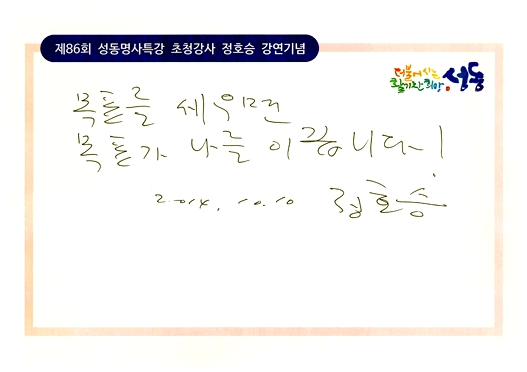 제86회 성동명사특강 초청강사 정호승 강연기념
더불어 사는
활기찬 희망 성동
목표를 세우면
목표가 나를 이끕니다!
2014. 10. 10 정호승